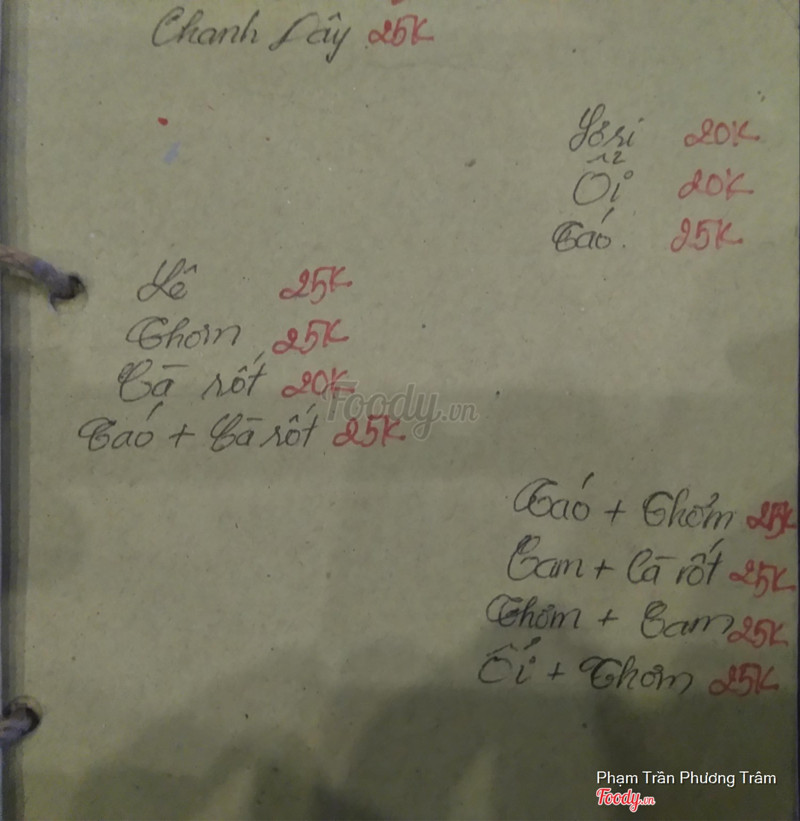 Chanh Dây 25K
Sơ ri 20K
Ổi 20K
Táo 25K
Lê 25K
Thơm 25K
Cà rốt 20K
Táo + Cà rốt 25K
Foody.vn
Táo + Thơm 25K
Cam + Cà rốt 25K
Thơm + Cam 25K
Ổi + Thơm 25K
Phạm Trần Phương Trâm
Foody.vn